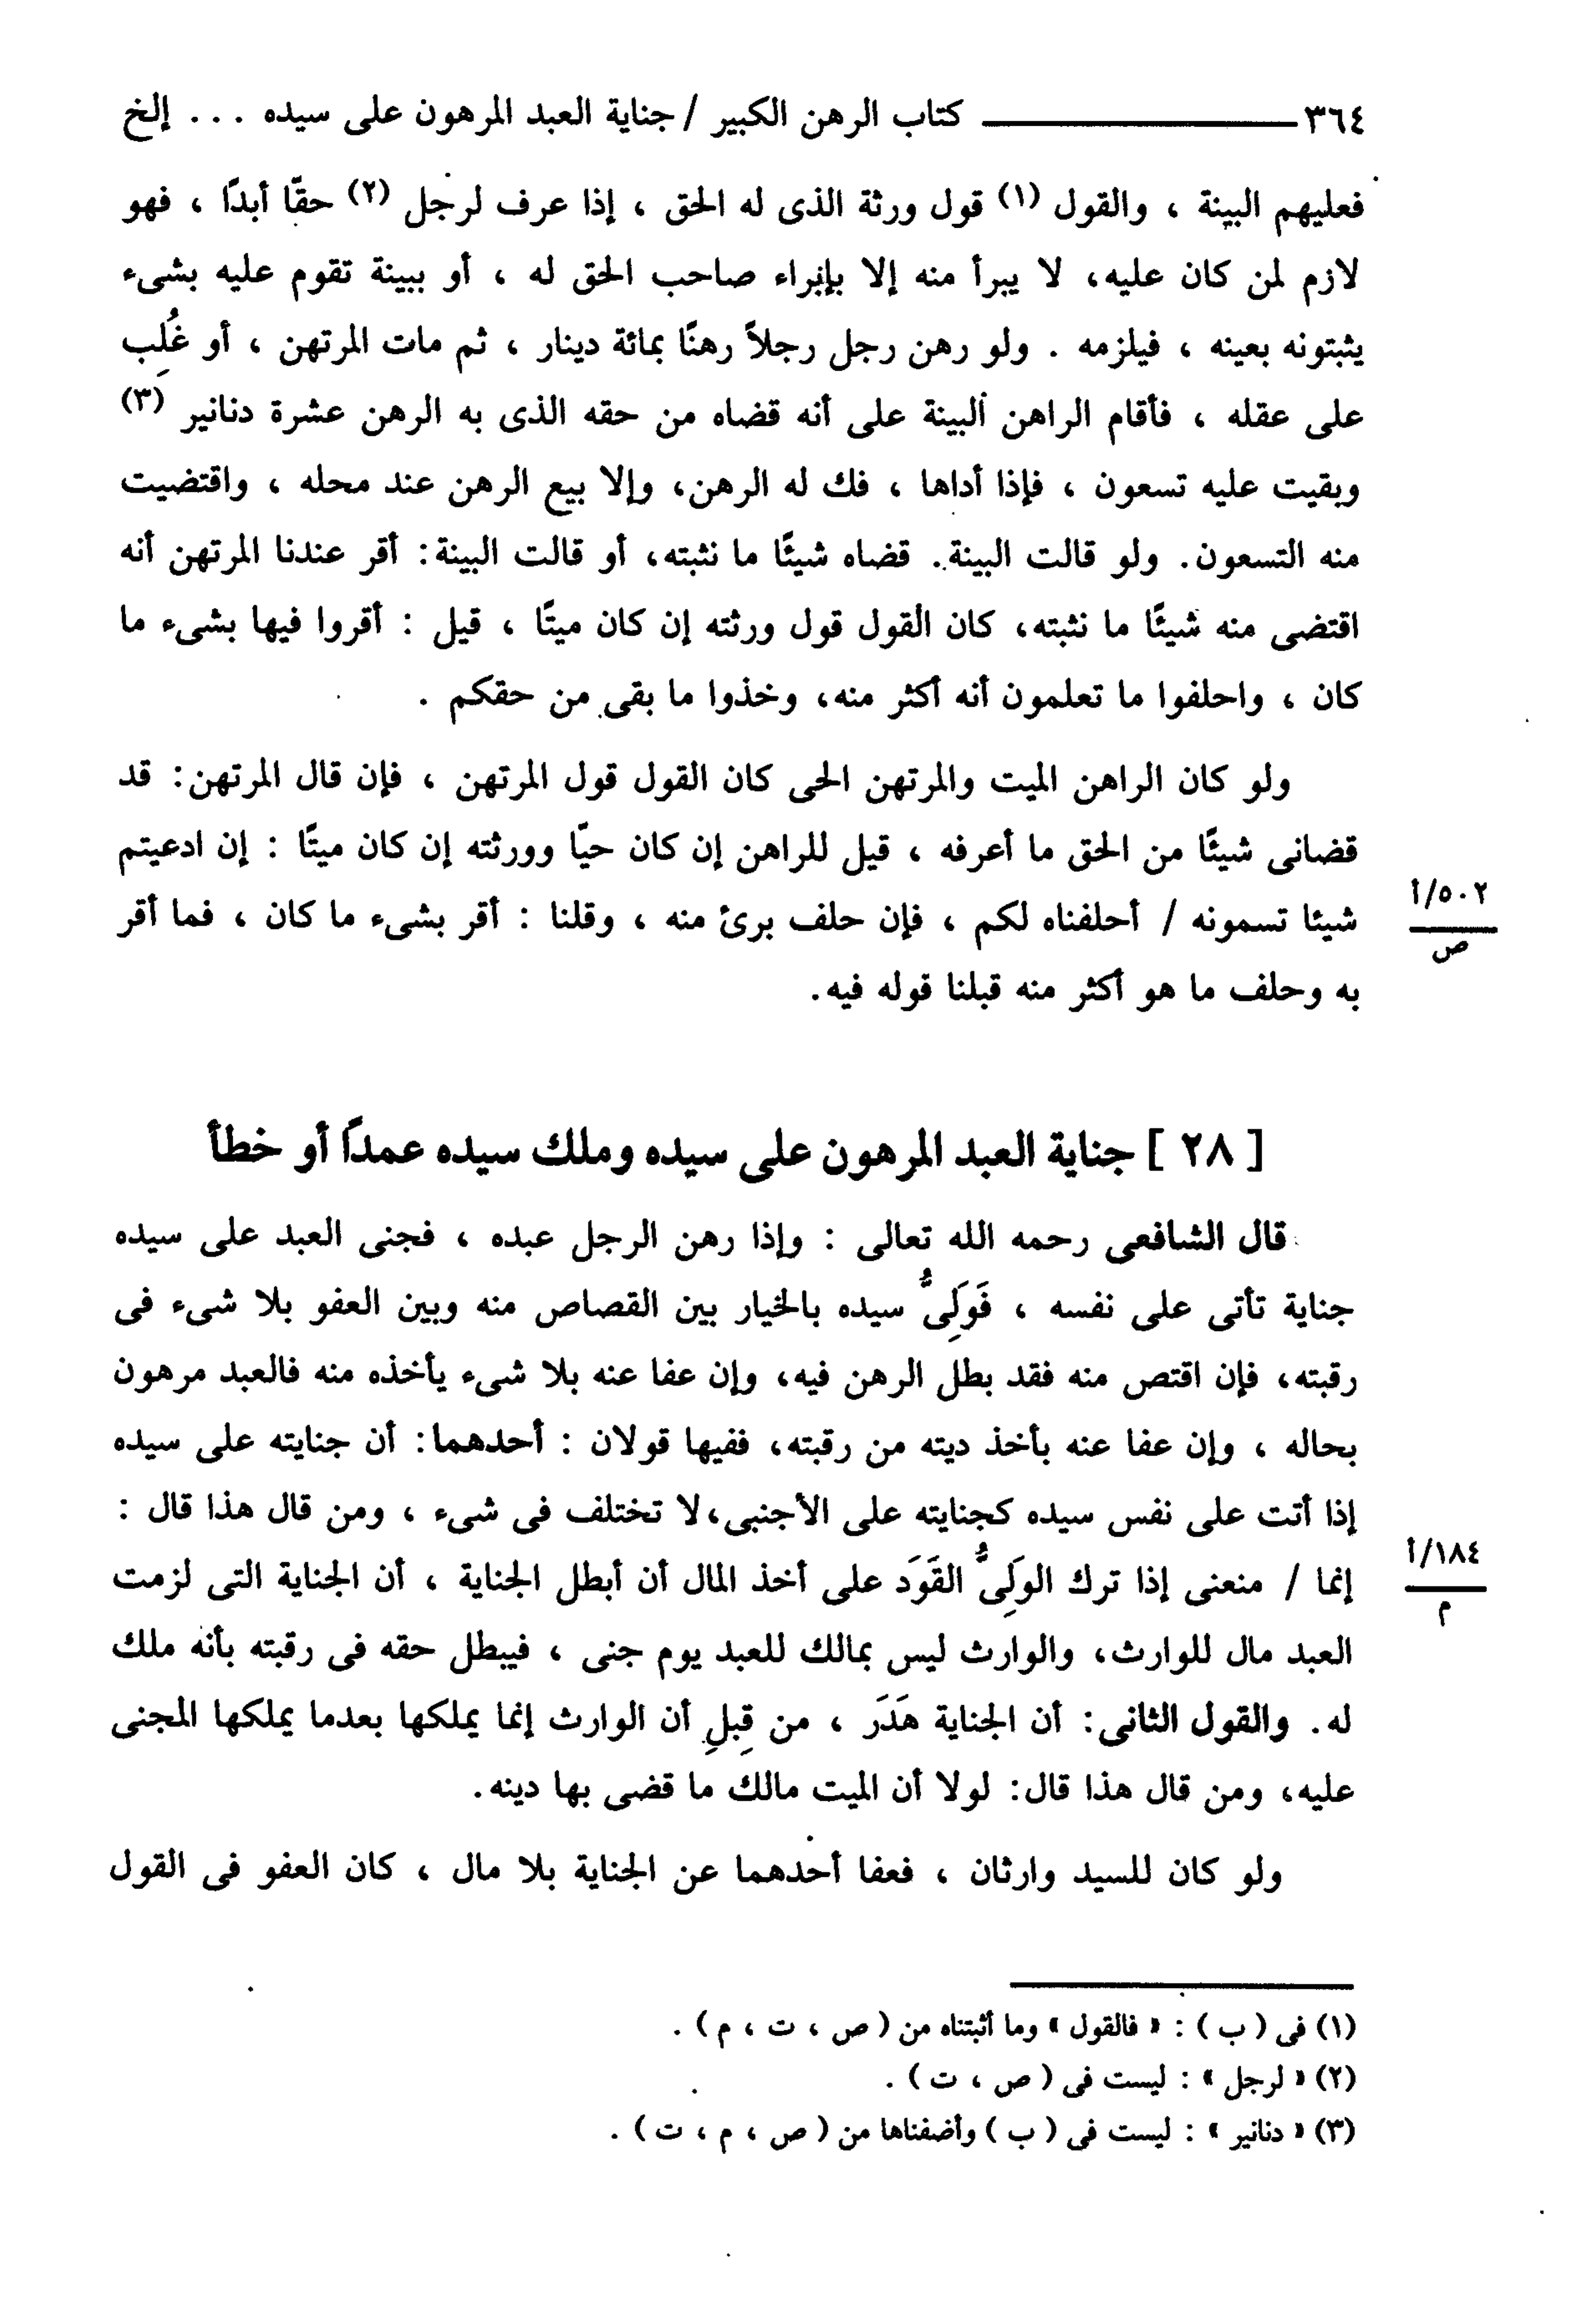 ٣٦٤ ــــــــــــــــــ كتاب الرهن الكبير / جناية العبد المرهون على سيده . . . إلخ
فعليهم البينة ، والقول (١) قول ورثة الذى له الحق ، إذا عرف لرجل (٢) حقًا أبدًا ، فهو
لازم لمن كان عليه، لا يبرأ منه إلا بإبراء صاحب الحق له ، أو ببينة تقوم عليه بشىء
يثبتونه بعينه ، فيلزمه . ولو رهن رجل رجلاً رهنًا بمائة دينار ، ثم مات المرتهن ، أو غُلِب
على عقله ، فأقام الراهن البينة على أنه قضاه من حقه الذى به الرهن عشرة دنانير (٣)
وبقيت عليه تسعون ، فإذا أداها ، فك له الرهن، وإلا بيع الرهن عند محله ، واقتضيت
منه التسعون. ولو قالت البينة. قضاه شيئًا ما نثبته، أو قالت البينة: أقر عندنا المرتهن أنه
اقتضى منه شيئًا ما نثبته، كان القول قول ورثته إن كان ميتًا ، قيل : أقروا فيها بشىء ما
كان ، واحلفوا ما تعلمون أنه أكثر منه، وخذوا ما بقى من حقكم .
ولو كان الراهن الميت والمرتهن الحى كان القول قول المرتهن ، فإن قال المرتهن: قد
قضانى شيئًا من الحق ما أعرفه ، قيل للراهن إن كان حيًا وورثته إن كان ميتًا : إن ادعيتم
شيئا تسمونه / أحلفناه لكم ، فإن حلف برئ منه ، وقلنا : أقر بشىء ما كان ، فما أقر
٥٠٢/أ
ص
به وحلف ما هو أكثر منه قبلنا قوله فيه.
[ ٢٨ ] جناية العبد المرهون على سيده وملك سيده عمدًا أو خطأ
قال الشافعى رحمه الله تعالى : وإذا رهن الرجل عبده ، فجنى العبد على سيده
جناية تأتى على نفسه ، فَوَلِىُّ سيده بالخيار بين القصاص منه وبين العفو بلا شىء فى
رقبته، فإن اقتص منه فقد بطل الرهن فيه، وإن عفا عنه بلا شىء يأخذه منه فالعبد مرهون
بحاله ، وإن عفا عنه بأخذ ديته من رقبته، ففيها قولان : أحدهما: أن جنايته على سيده
إذا أتت على نفس سيده كجنايته على الأجنبى،لا تختلف فى شىء ، ومن قال هذا قال :
إنما / منعنى إذا ترك الولِىُّ القَوَد على أخذ المال أن أبطل الجناية ، أن الجناية التى لزمت
١٨٤/أ
م
العبد مال للوارث، والوارث ليس بمالك للعبد يوم جنى ، فيبطل حقه فى رقبته بأنه ملك
له. والقول الثانى: أن الجناية هَدَر ، من قِبلِ أن الوارث إنما يملكها بعدما يملكها المجنى
عليه، ومن قال هذا قال: لولا أن الميت مالك ما قضى بها دينه.
ولو كان للسيد وارثان ، فعفا أحدهما عن الجناية بلا مال ، كان العفو فى القول
(١) فى ( ب ) : « فالقول » وما أثبتناه من ( ص ، ت ، م ) .
(٢) « لرجل » : ليست فى ( ص ، ت ) .
(٣) « دنانير » : ليست فى ( ب ) وأضفناها من ( ص ، م ، ت ) .